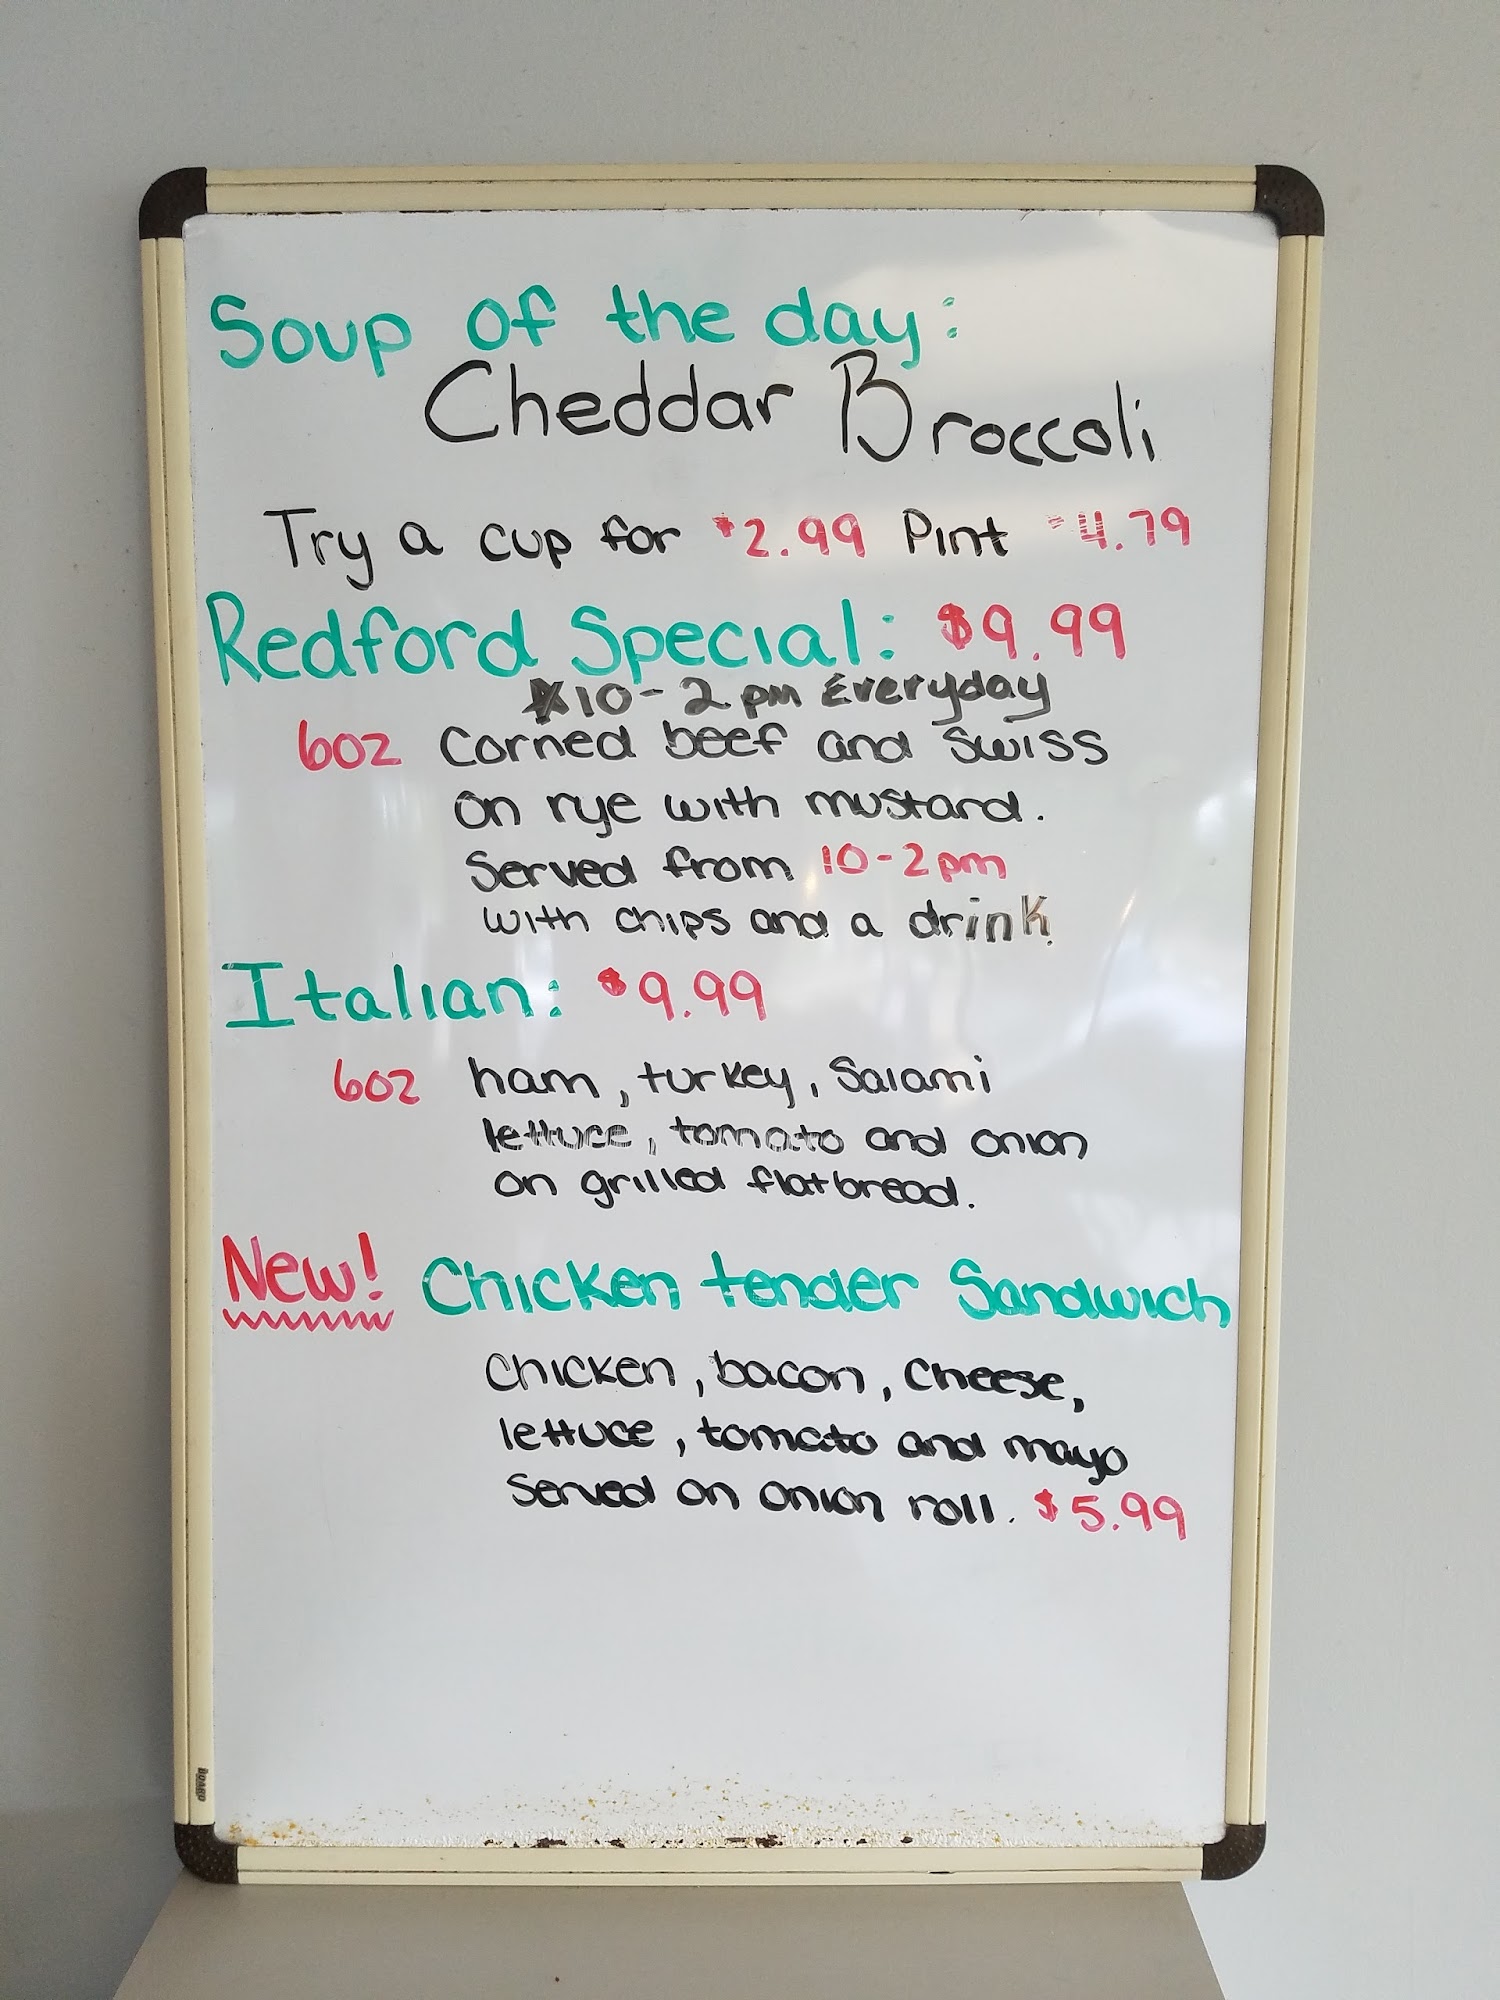 Soup of the day:
Cheddar Broccoli
Try a cup for $2.99 Pint $4.79
Redford Special: $9.99
*10-2pm Everyday
6oz Corned beef and Swiss
on rye with mustard.
Served from 10-2pm
with chips and a drink.
Italian: $9.99
6oz ham, turkey, Salami
lettuce, tomato and onion
on grilled flatbread.
New! Chicken tender Sandwich
Chicken, bacon, Cheese,
lettuce, tomato and mayo
Served on onion roll. $5.99
BOARD